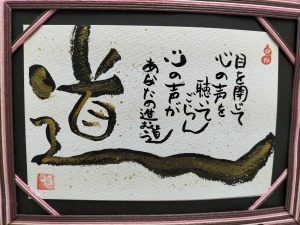 目を閉じて
心の声を
聴いてごらん
心の声が
あなたの進む道
道